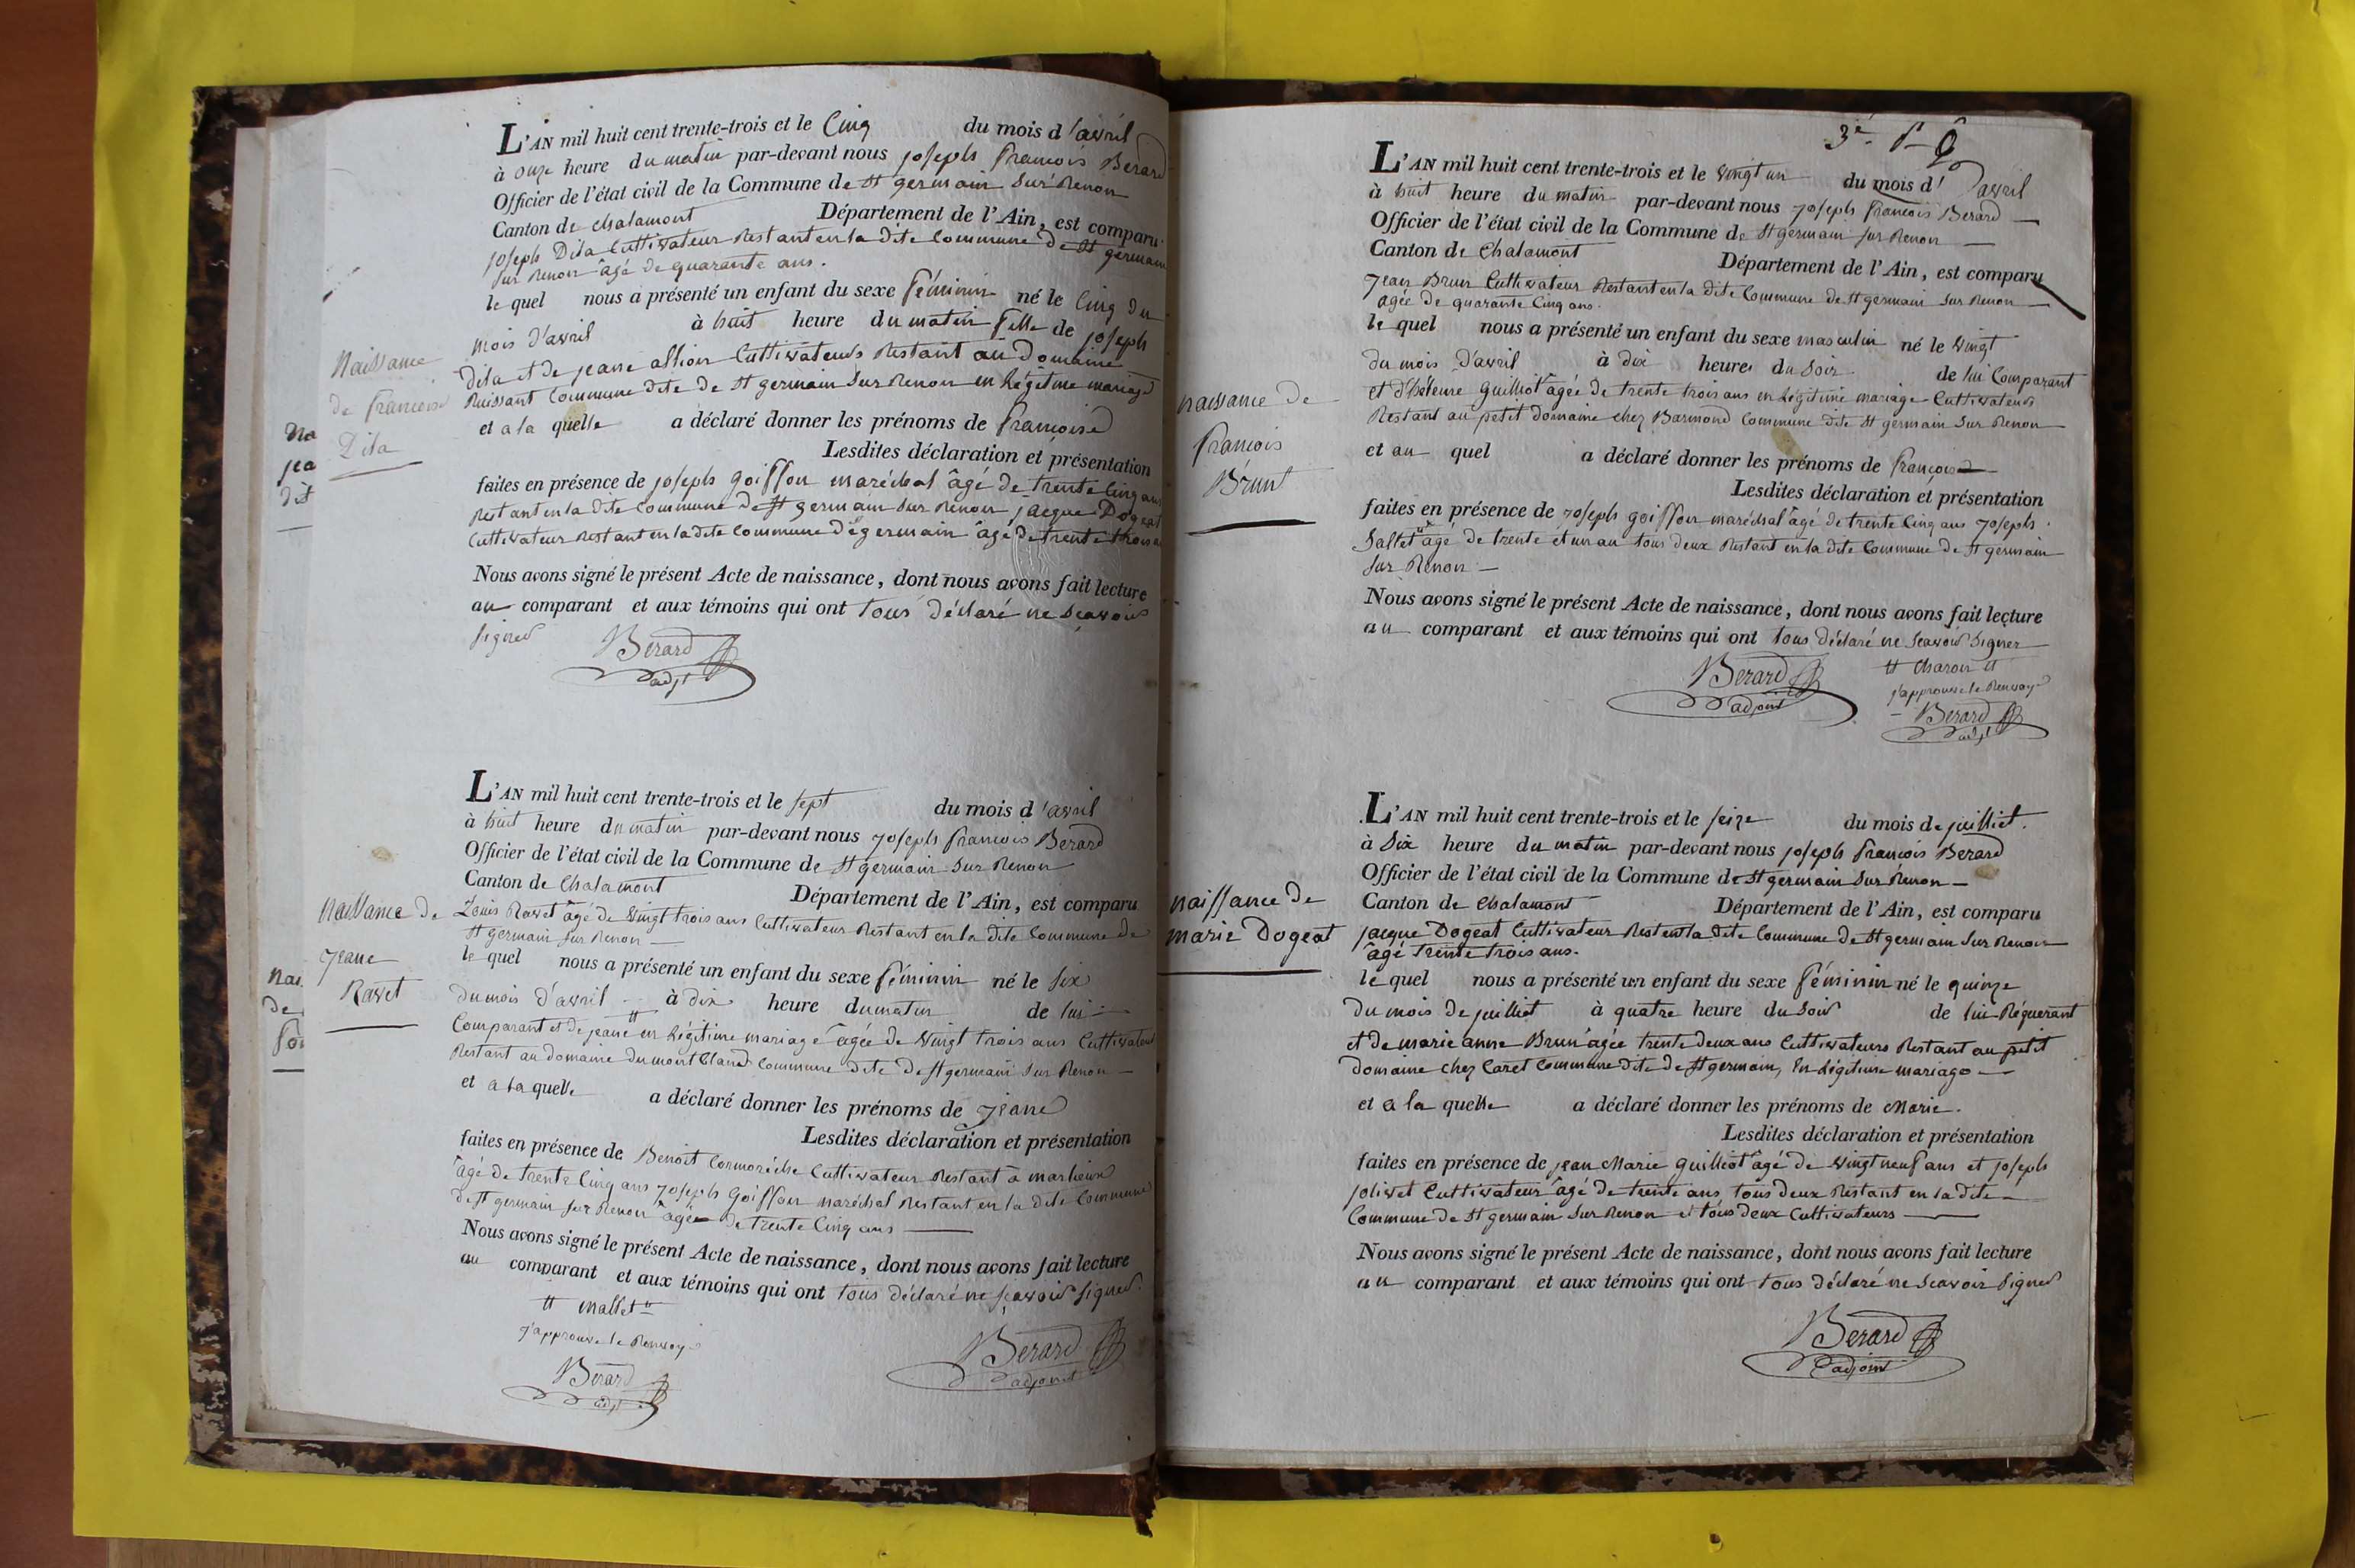 L'AN mil huit cent trente-trois et le Cinq du mois d'avril
à onze heure du matin par-devant nous joseph francois Berard
Officier de l'état civil de la Commune de St germain Sur Renon
Canton de Chalamont Département de l'Ain, est comparu
joseph Dita Cultivateur Restant en la dite Commune de St germain
sur Renon âgé de quarante ans.
le quel nous a présenté un enfant du sexe féminin né le Cinq du
mois d'avril à huit heure du matin fille de joseph
Naissance
de francoise
Dita
Dita et de jeane allion Cultivateurs Restant au Domaine
Ruissant Commune dite de St germain Sur Renon en Légitime mariage
et a la quelle a déclaré donner les prénoms de francoise
Lesdites déclaration et présentation
faites en présence de joseph goiffon maréchal âgé de trente Cinq ans
Restant en la dite Commune de St germain sur Renon jacque Dogeat
Cultivateur Restant en la dite Commune de germain âgé de trente trois
Nous avons signé le présent Acte de naissance, dont nous avons fait lecture
au comparant et aux témoins qui ont tous déclaré ne Scavoir
signer
Berard
adjt
L'AN mil huit cent trente-trois et le sept du mois d'avril
à huit heure du matin par-devant nous joseph francois Berard
Officier de l'état civil de la Commune de St germain Sur Renon
Canton de Chalamont Département de l'Ain, est comparu
Naissance de
jeane
Ravet
Louis Ravet âgé de Vingt trois ans Cultivateur Restant en la dite Commune de
St germain sur Renon
le quel nous a présenté un enfant du sexe féminin né le six
du mois d'avril à dix heure du matin de lui
Comparant et de jeane # en Légitime mariage âgée de Vingt trois ans Cultivateurs
Restant au domaine du mont Commune dite de St germain Sur Renon
et a la quelle a déclaré donner les prénoms de jeane
Lesdites déclaration et présentation
faites en présence de Benoit Cormoréche Cultivateur Restant a marlieux
âgé de trente Cinq ans joseph Goiffon maréchal Restant en la dite Commune
de St germain sur Renon âgé de trente Cinq ans
Nous avons signé le présent Acte de naissance, dont nous avons fait lecture
au comparant et aux témoins qui ont tous déclaré ne scavoir signer
# mallet #
j'approuve le Renvoy
Berard
adjt
Berard
adjoint
3e
L'AN mil huit cent trente-trois et le Vingt un du mois d'avril
à huit heure du matin par-devant nous joseph francois Berard
Officier de l'état civil de la Commune de St germain sur Renon
Canton de Chalamont Département de l'Ain, est comparu
jean Brun Cultivateur Restant en la dite Commune de St germain Sur Renon
agée de quarante Cinq ans.
le quel nous a présenté un enfant du sexe masculin né le Vingt
du mois d'avril à dix heure du Soir de lui Comparant
naissance de
francois
Brunt
et d'héleine guilliot âgée de trente trois ans en Légitime mariage Cultivateurs
Restant au petit domaine chez Barmond Commune dite St germain Sur Renon
et au quel a déclaré donner les prénoms de francois
Lesdites déclaration et présentation
faites en présence de joseph goiffon maréchal âgé de trente Cinq ans joseph
Sallet # âgé de trente et un an tous deux Restant en la dite Commune de St germain
sur Renon
Nous avons signé le présent Acte de naissance, dont nous avons fait lecture
au comparant et aux témoins qui ont tous déclaré ne Scavoir Signer
Berard
adjoint
# Charon #
j'approuve le Renvoy
Berard
adjt
L'AN mil huit cent trente-trois et le seize du mois de juilliet.
à Six heure du matin par-devant nous joseph francois Berard
Officier de l'état civil de la Commune de St germain Sur Renon
Canton de Chalamont Département de l'Ain, est comparu
naissance de
marie Dogeat
jacque Dogeat Cultivateur Restent la Dite Commune de St germain Sur Renon
âgé trente trois ans.
le quel nous a présenté un enfant du sexe féminin né le quinze
du mois de juilliet à quatre heure du Soir de lui Réquerant
et de marie anne Brun agée trente deux ans Cultivateurs Restant au petit
domaine chez Caret Commune dite de St germain, En Légitime mariage
et a la quelle a déclaré donner les prénoms de Marie.
Lesdites déclaration et présentation
faites en présence de jean Marie guilliot âgé de Vingt neuf ans et joseph
jolivet Cultivateur âgé de trente ans, tous deux Restant en la dite
Commune de St germain Sur Renon et tous deux Cultivateurs
Nous avons signé le présent Acte de naissance, dont nous avons fait lecture
au comparant et aux témoins qui ont tous déclaré ne Scavoir signer
Berard
adjoint